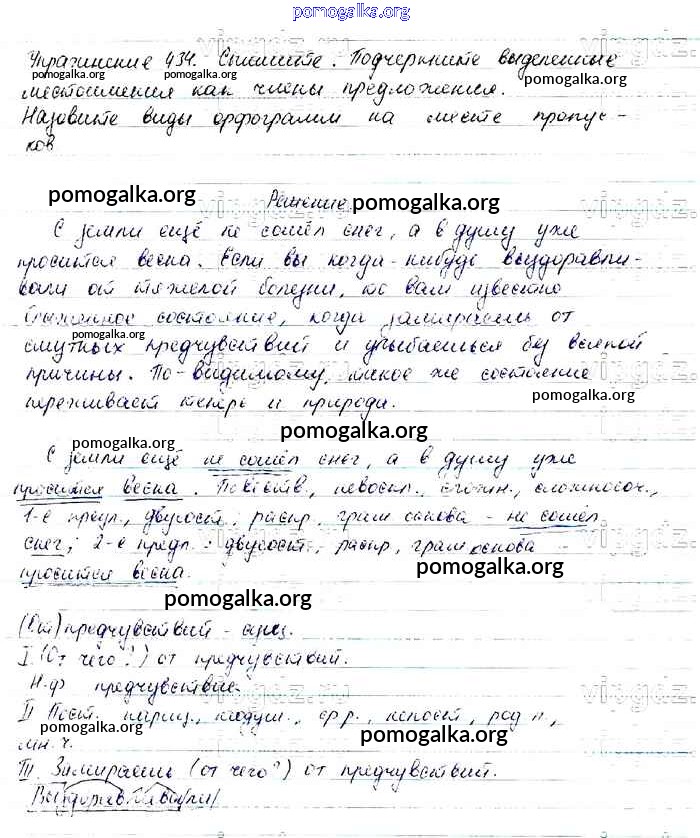 pomogalka.org
Упражнение 434. Спишите. Подчеркните выделенные
pomogalka.org pomogalka.org pomogalka.org
местоимения как члены предложения.
Назовите виды орфограмм на месте пропус-
ков
pomogalka.org Решение pomogalka.org
С земли ещё не сошёл снег, а в душу уже
просится весна. Если вы когда-нибудь выздоравли-
вали от тяжелой болезни, то вам известно
блаженное состояние, когда замираешь от
pomogalka.org
смутных предчувствий и улыбаешься без всякой
причины. По-видимому, такое же состояние
pomogalka.org
переживает теперь и природа.
pomogalka.org
pomogalka.org
С земли ещё не сошёл снег, а в душу уже
просится весна. Повеств., невоскл., сложн., сложносоч.,
1-е предл., двусост., распр, грам основа - не сошёл
снег; 2-е предл.: двусост., распр, грам основа
pomogalka.org
просится весна.
pomogalka.org
(От) предчувствий - сущ.
I. (От чего?) от предчувствий.
Н.ф предчувствие.
II Пост. нариц., неодуш., ср р., непост, род п.,
pomogalka.org pomogalka.org
мн. ч.
III. Замираешь (от чего?) от предчувствий.